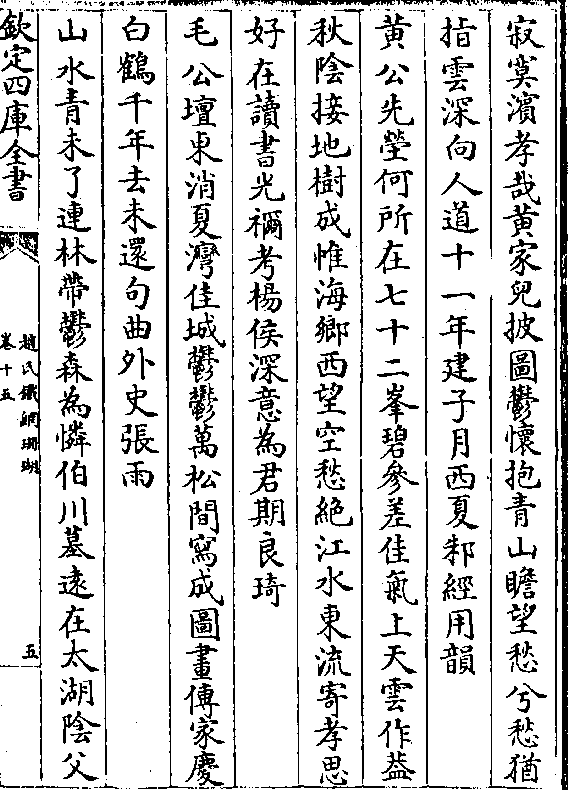 寂寞濱孝哉黄家兒披圖鬱懷抱青山瞻望愁兮愁猶
指雲深向人道十一年建子月西夏邾經用韻
黄公先塋何所在七十二峯碧參差佳氣上天雲作葢
秋陰接地樹成惟海鄉西望空愁絶江水東流寄孝思
好在讀書光禰考楊侯深意為君期良琦
毛公壇東消夏灣佳城鬱鬱萬松間寫成圖畫傳家慶
白鶴千年去未還句曲外史張雨
山水青未了連林帶鬱森為憐伯川墓遠在太湖陰父
欽定四庫全書
趙氏鐵網珊瑚
卷十五
五